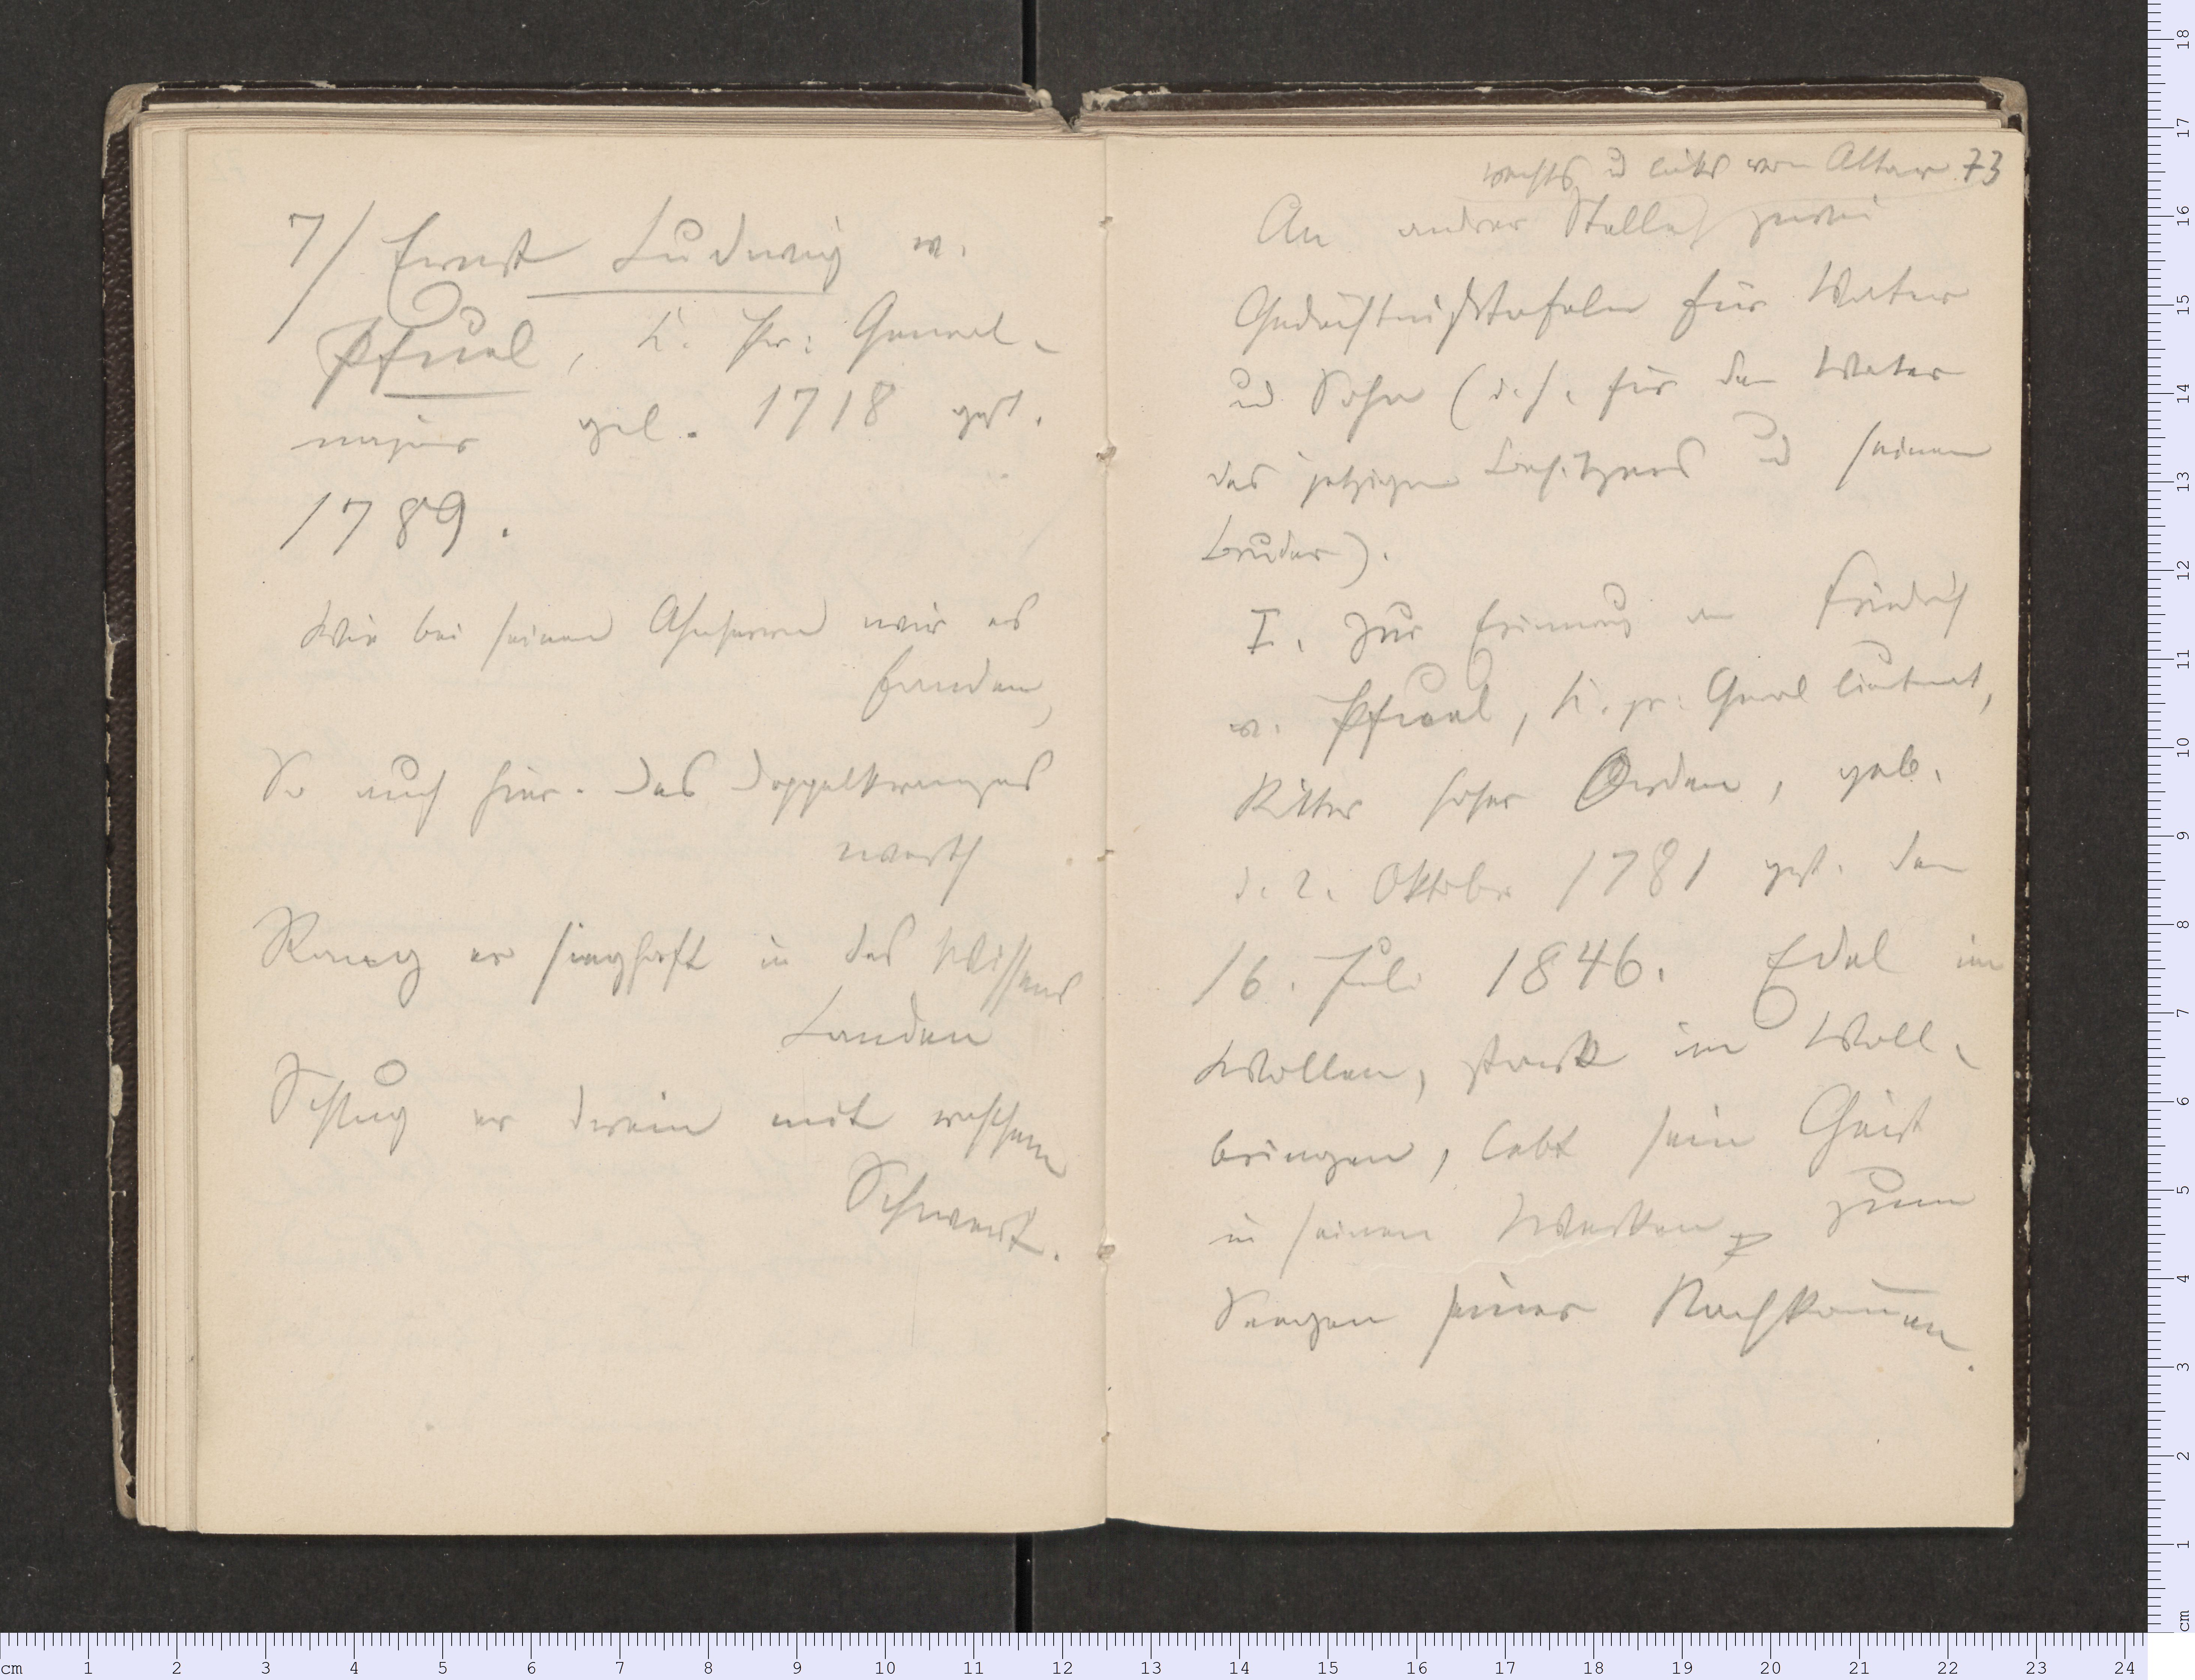 7/ Ernst Ludwig v.
Pfuel, K. Pr: General-
major geb. 1718 gest.
1789.
Wie bei seinen Ahnherrn wir es
fanden,
So auch hier. Des Doppelkranzes
werth
Rang er sieghaft in des Wissens
Landen
Schlug er drein mit raschem
Schwert.
73
rechts u links vom Altar
An andrer Stelle zwei
Gedächtnißtafeln für Vater
ud Sohn (d. h. für den Vater
des jetzigen Besitzers ud seinen
Bruder).
I. Zur Erinnrung an Friedrich
v. Pfuel, K. pr: Genral lieutnat,
Ritter hoher Orden, geb.
d. 2. Oktober 1781 gest. den
16. Juli 1846. Edel im
Wollen, stark im Voll-
bringen, lebt sein Geist
in seinen Werken zum
Seegen seiner Nachkom̄en.